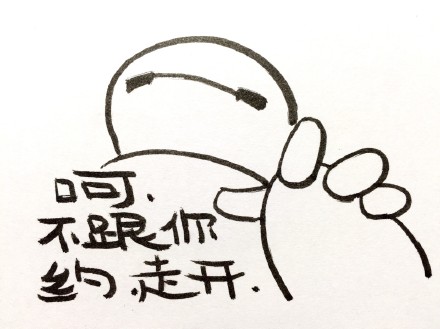 呵.
不跟你
约.走开.